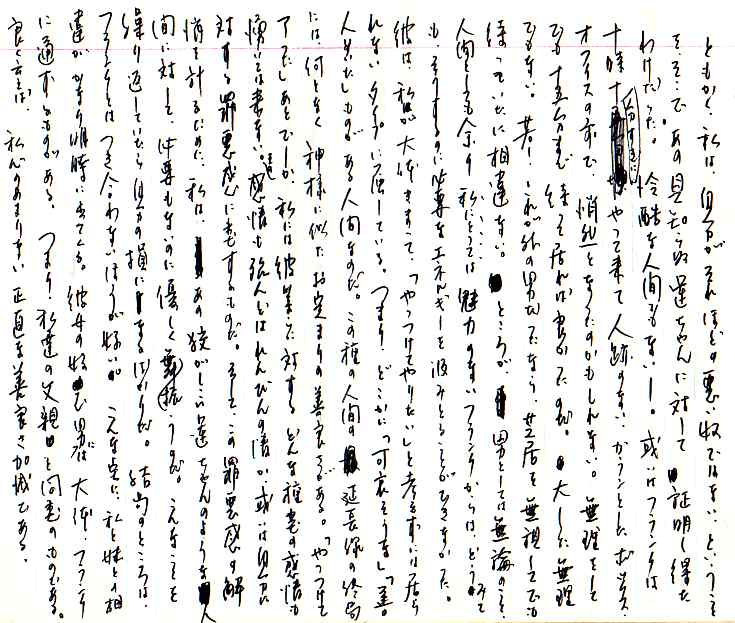 ともかく、私は、自分がそれほどの悪い奴ではない、ということ
を、そこで、あの見知らぬ連ちゃんに対して 証明し得た
わけだった。冷酷な人間でもない——。或いはフランクは
十時十五分すぎに やって来て 人跡のない、がらんとした
オフィスの前で、悄然となったのかもしれない。無理をして
でも 十五分まで 待って居れば良かったのだ。大した無理
でもない。若し、これが外の男ひとなら、芝居を無視してでも
待っていたに相違ない。ところが、男としては無論のこと、
人間としても余り 私にとっては 魅力のないフランクからは、どうみて
も、そうするのに必要なエネルギーを汲みとることができなかった。
彼は、私が大体きまって、「やっつけてやりたい」と考えずには居ら
れない タイプに属している。つまり、どこかに「可哀そうな」「善
人」じみたものがある人間なのだ。この種の人間の 延長線の終局
には、何となく 神様に似た お定まりの善良さがある。「やっつけ
て」しまったあとでしか、私には彼等に対する どんな種類の感情も
湧いては来ない。感情も 殆んどはれんびんの情か、或いは自分に
対する罪悪感に過ぎないものだ。そして この罪悪感の解
消を計るために、私は、あの 連ちゃんのような人
間に対して、必要もないのに優しく 振舞うのだ。こんなことを
繰り返していたら 自分の損になるばかりだ。結局のところは、
フランクとは つき合わないほうが好い。こんな空に、私と妹との相
違が かなり明瞭に出てくる。彼女の好む男は、大体、フランク
に通ずるものがある。つまり、私達の父親と同型のものである。
良く云えば、私心のあまりない 正直な善良さ加減である。